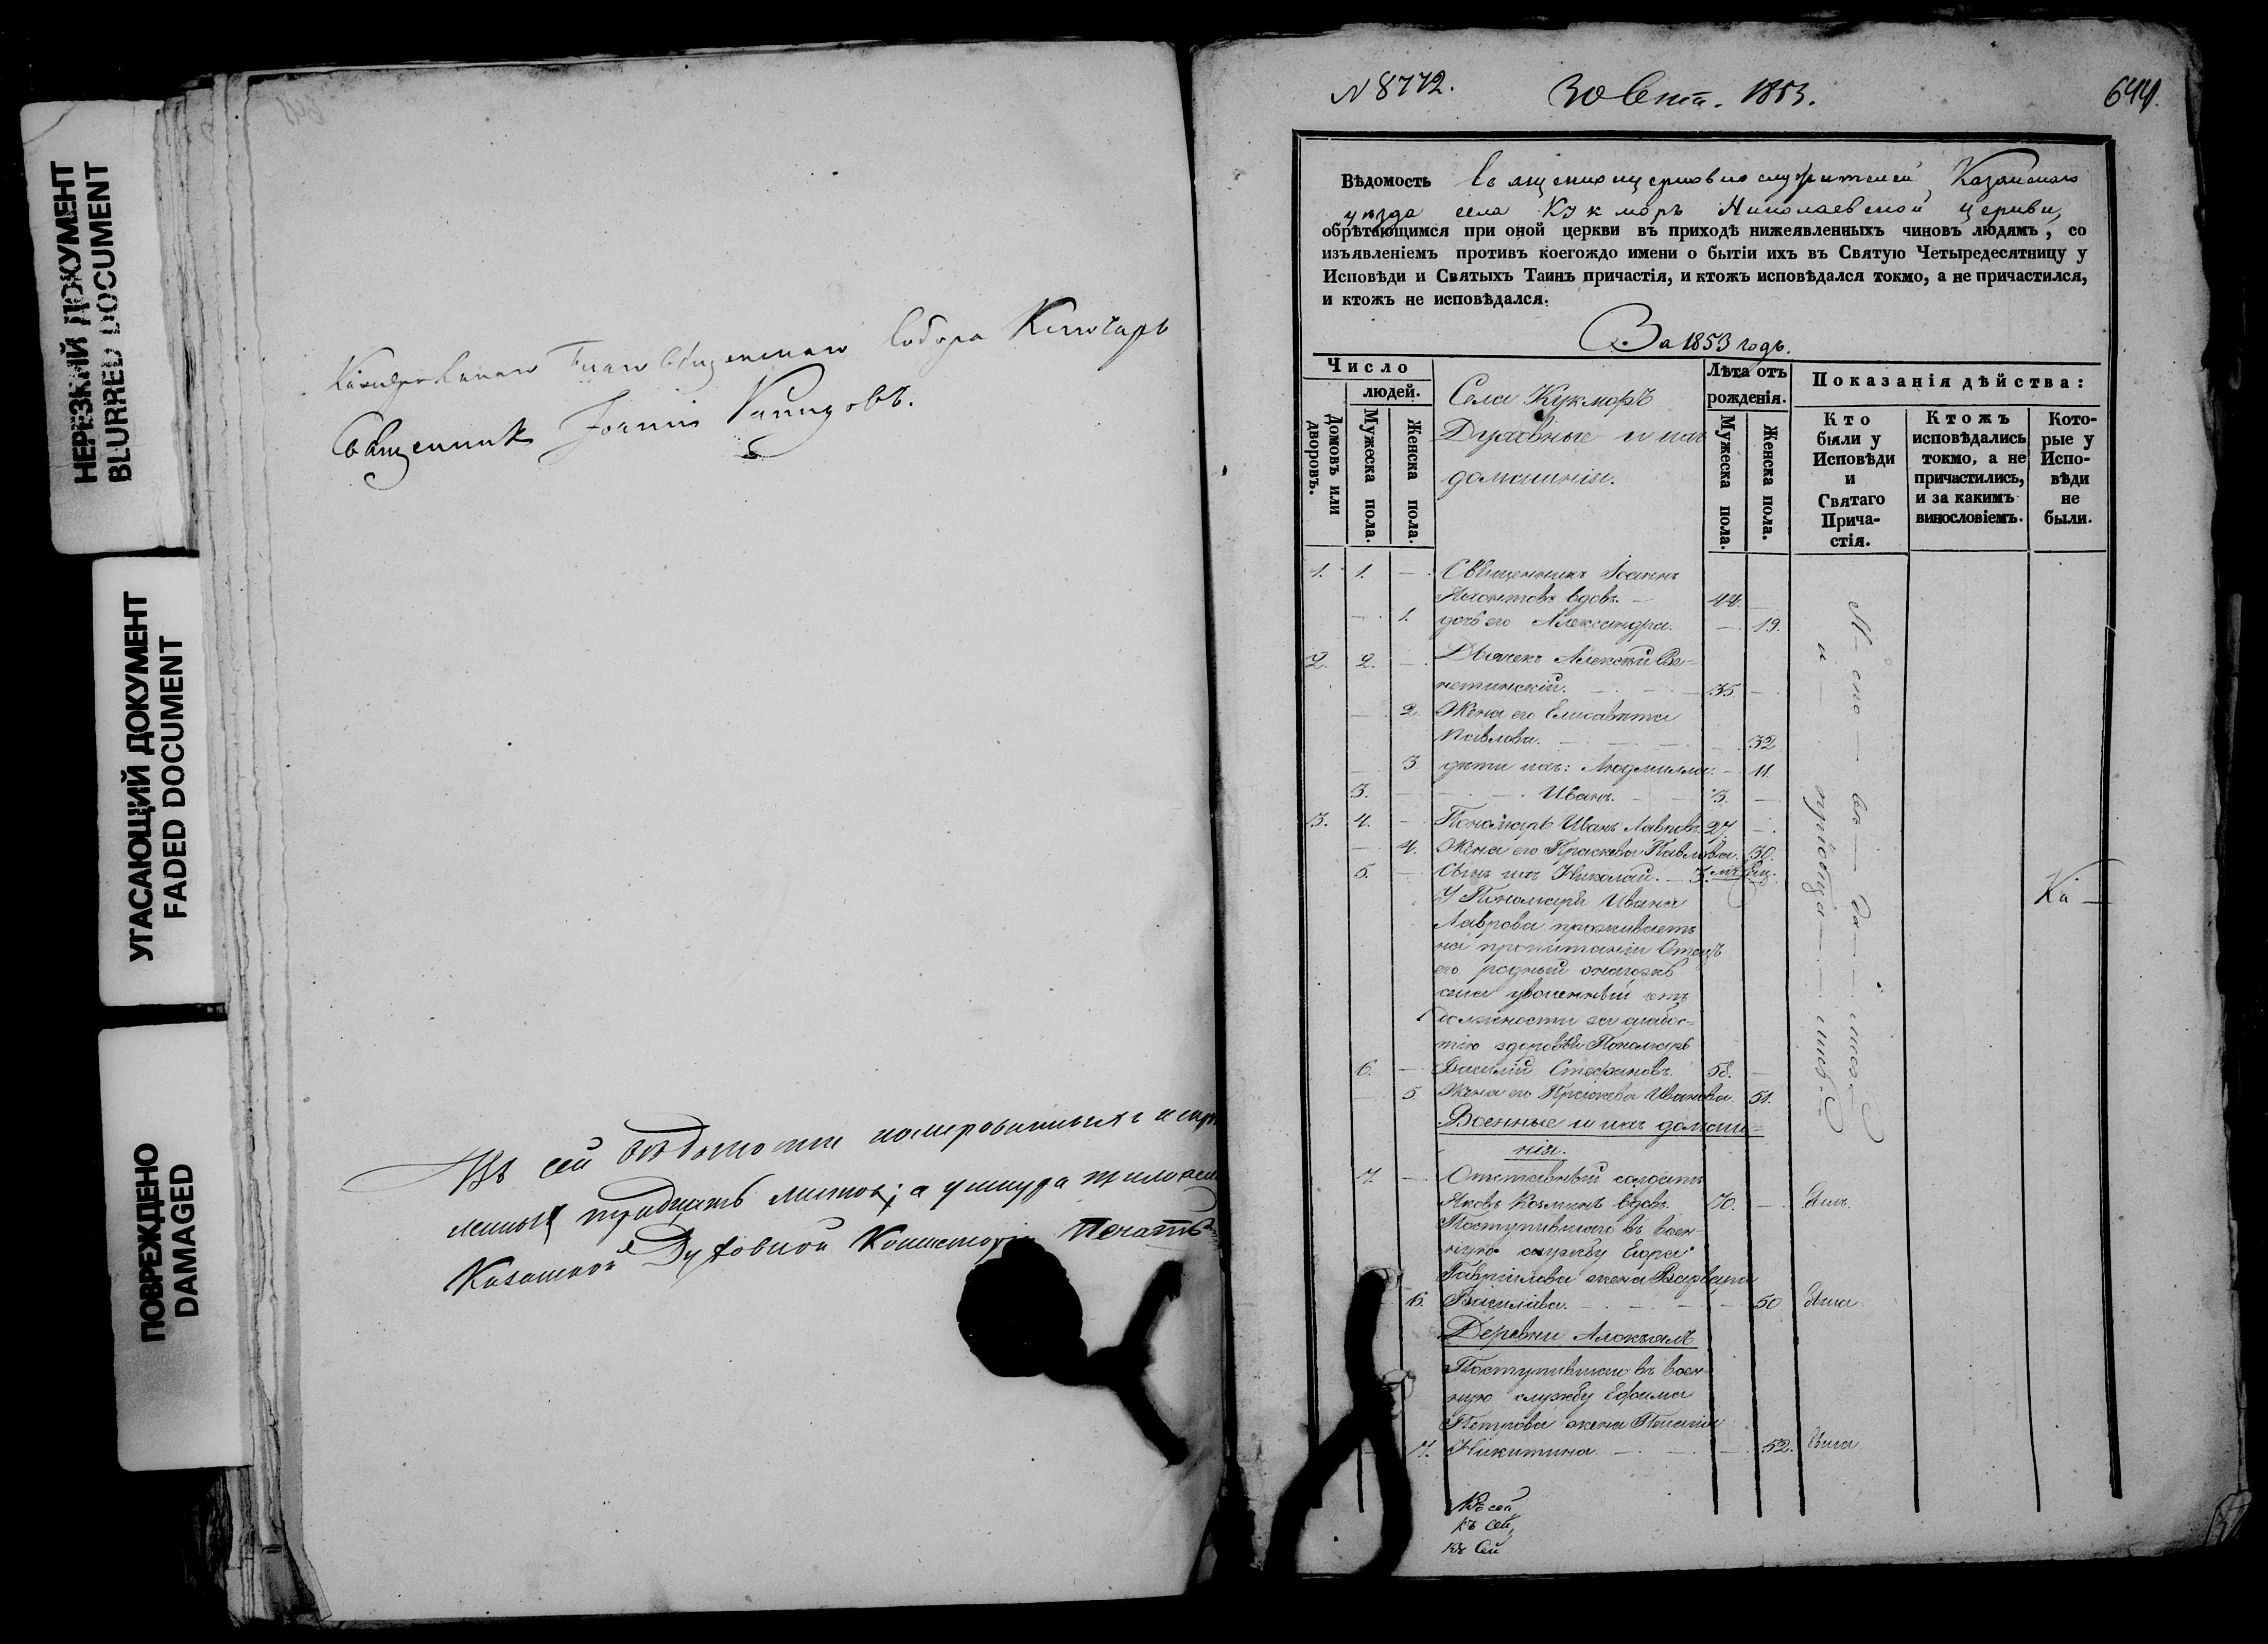 НЕРЕЗКИЙ ДОКУМЕНТ
BLURRED DOCUMENT
УГАСАЮЩИЙ ДОКУМЕНТ
FADED DOCUMENT
ПОВРЕЖДЕНО
DAMAGED
Собора Ключарь
Священник
Въ сей Ведомости
тридцать листов; а у шнура
Казанской Духовной Консисторіи Печать
N 8772. 30 Сент. 1853. 644.
Вѣдомость священноцерковнослужителей Казанскаго
уѣзда села Кукморъ Николаевской церкви,
обрѣтающимся при оной церкви въ приходѣ нижеявленныхъ чиновъ людямъ, со
изъявленіемъ противъ коегождо имени о бытіи ихъ въ Святую Четыредесятницу у
Исповѣди и Святыхъ Таинъ причастія, и ктожъ исповѣдался токмо, а не причастился,
и ктожъ не исповѣдался.
За 1853 годъ.
Число
людей.
Домовъ или дворовъ.
Мужеска пола.
Женска пола.
Села Кукморъ
Духовные и ихъ
домашніе.
Лѣта отъ
рожденія.
Мужеска пола.
Женска пола.
Показанія дѣйства:
Кто
были у
Исповѣди
и
Святаго
Прича-
стія.
Ктожъ
исповѣдались
токмо, а не
причастились,
и за какимъ
винословіемъ.
Кото-
рые у
Испо-
вѣди
не
были.
1. 1. — Священникъ Іоаннъ
вдовъ. — 44. —
— 1. дочь его Александра. — 19.
2. 2. — Дьячекъ Алексѣй Ве-
нетинскій. — 35. —
— 2. Жена его Елисавета
Павлова. — 32
— 3. дѣти ихъ: Людмилла. — 11.
3. — Иванъ. — 3. —
3. 4. — Пономарь Иванъ Лавровъ. 27. —
— 4. Жена его Прасковья Павлова. 30.
5. — Сынъ ихъ Николай. —
У Пономаря Ивана
Лаврова проживаетъ
на пропитаніи Отецъ
его родный
села уволенный отъ
должности за слабос-
тію здоровья Пономарь
6. — Василій Стефановъ. 58. —
— 5 Жена его Прасковья Иванова. 51.
Военные и ихъ домаш-
ніе.
7. — Отставный солдатъ
Яковъ Козминъ вдовъ. 70. — былъ.
Поступившаго въ воен-
ную службу
Гаврилова жена Варвара
6. Васильева. — 50 была
Деревни
Поступившаго въ воен-
ную службу Ефима
Петрова жена Пелагія
7. Никитина. — 52. была
Къ сей
къ сей,
къ Сей